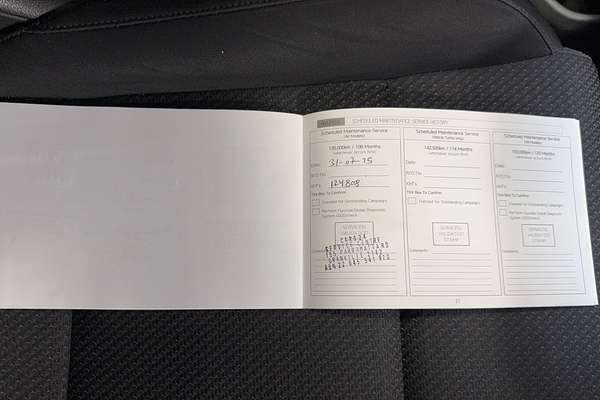 SCHEDULED MAINTENANCE SERVICE HISTORY
Scheduled Maintenance Service
(All Models)
135,000km / 108 Months
(whichever occurs first)
Date: 31-07-15
R/O No:
KM's: 124808
Tick Box To Confirm
Checked for Outstanding Campaigns
Perform Hyundai Global Diagnostic
System (GDS) check
SERVICES
VALIDATED
SERVICE CENTRE
GRANVILLE 2142
Comments:
Scheduled Maintenance Service
142,500km / 114 Months
(whichever occurs first)
Date:
R/O No:
KM's:
Tick Box To Confirm
Checked for Outstanding Campaigns
SERVICES
VALIDATED
STAMP
Comments:
Scheduled Maintenance Service
(All Models)
150,000km / 120 Months
(whichever occurs first)
Date:
R/O No:
KM's:
Tick Box To Confirm
Checked for Outstanding Campaigns
Perform Hyundai Global Diagnostic
System (GDS) check
SERVICES
VALIDATED
STAMP
Comments: